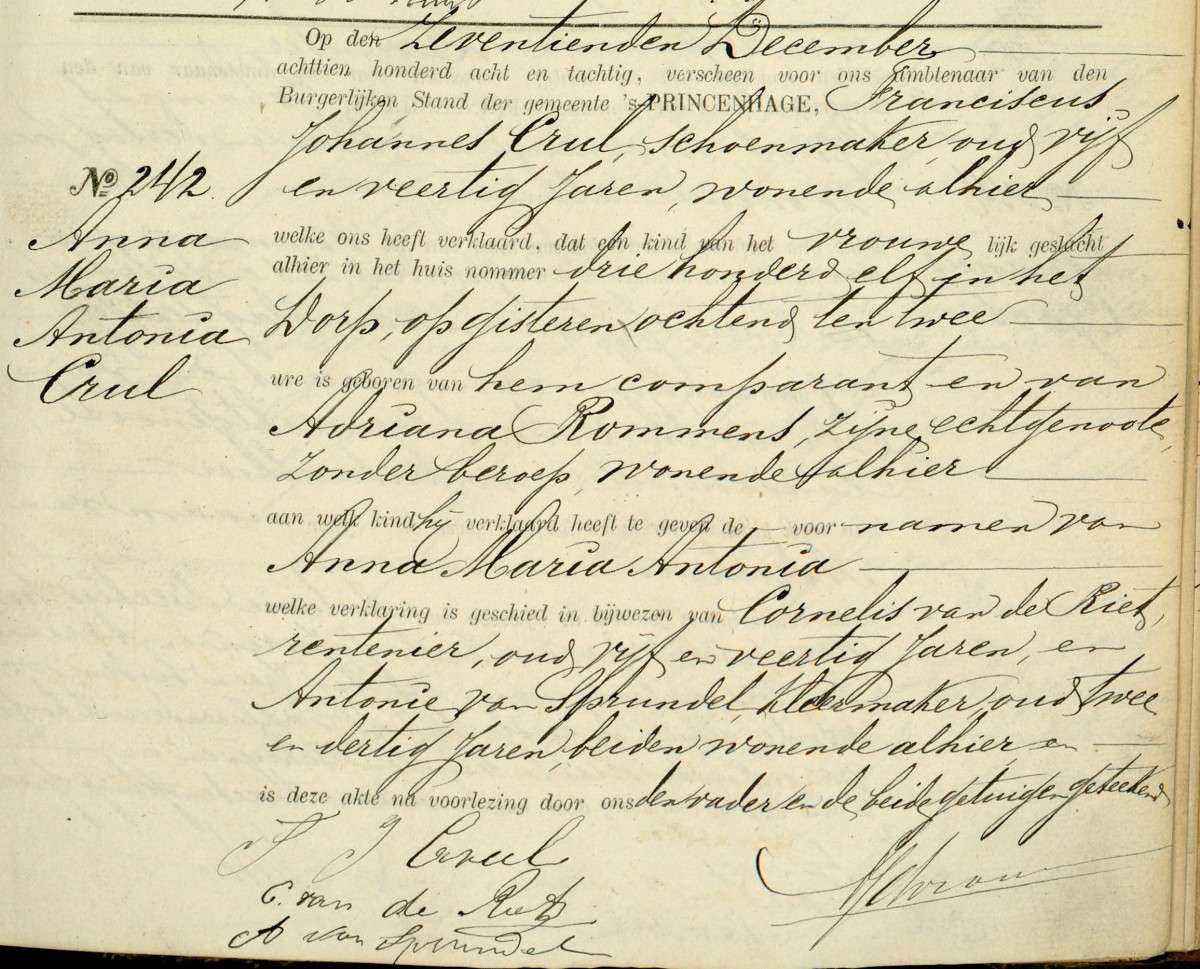 Op den Zeventienden December
achttien honderd acht en tachtig, verscheen voor ons Ambtenaar van den
Burgerlijken Stand der gemeente 's PRINCENHAGE, Franciscus
Johannes Crul, schoenmaker, oud vijf
en veertig Jaren, wonende alhier
No 242.
Anna
Maria
Antonia
Crul
welke ons heeft verklaard, dat een kind van het vrouwe lijk geslacht
alhier in het huis nommer drie honderd elf in het
Dorp, op gisteren ochtend ten twee
ure is geboren van hem comparant en van
Adriana Rommens, zijne echtgenoote,
zonder beroep, wonende alhier
aan welk kind hij verklaard heeft te geven de — voor namen van
Anna Maria Antonia
welke verklaring is geschied in bijwezen van Cornelis van de Riet,
rentenier, oud vijf en veertig Jaren, en
Antonie van Sprundel, kleermaker, oud twee
en dertig Jaren, beiden wonende alhier, en
is deze akte na voorlezing door ons den vader en de beide getuigen geteekend
F J Crul
C. van de Riet
A van Sprundel